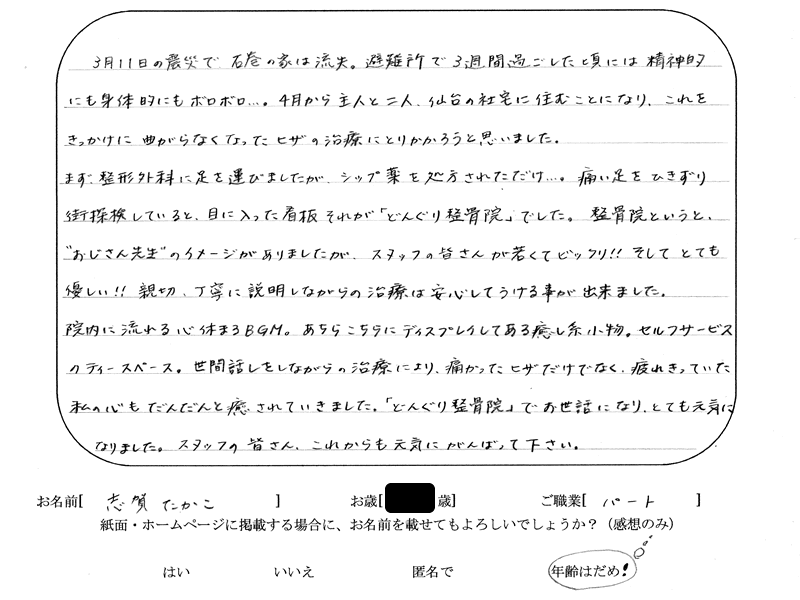 3月11日の震災で石巻の家は流失。避難所で3週間過ごした頃には精神的
にも身体的にもボロボロ…。4月から主人と二人、仙台の社宅に住むことになり、これを
きっかけに曲がらなくなったヒザの治療にとりかかろうと思いました。
まず、整形外科に足を運びましたが、シップ薬を処方されただけ…。痛い足をひきずり
街探検していると、目に入った看板それが「どんぐり整骨院」でした。整骨院というと、
“おじさん先生”のイメージがありましたが、スタッフの皆さんが若くてビックリ!!そしてとても
優しい!!親切、丁寧に説明しながらの治療は安心してうける事が出来ました。
院内に流れる心休まるBGM。あちらこちらにディスプレイしてある癒し系小物。セルフサービス
のティースペース。世間話しをしながらの治療により、痛かったヒザだけでなく、疲れきっていた
私の心もだんだんと癒されていきました。「どんぐり整骨院」でお世話になり、とても元気に
なりました。スタッフの皆さん、これからも元気にがんばって下さい。
お名前[ 志賀たかこ ] お歳[ 歳] ご職業[ パート ]
紙面・ホームページに掲載する場合に、お名前を載せてもよろしいでしょうか?(感想のみ)
はい いいえ 匿名で 年齢はだめ!